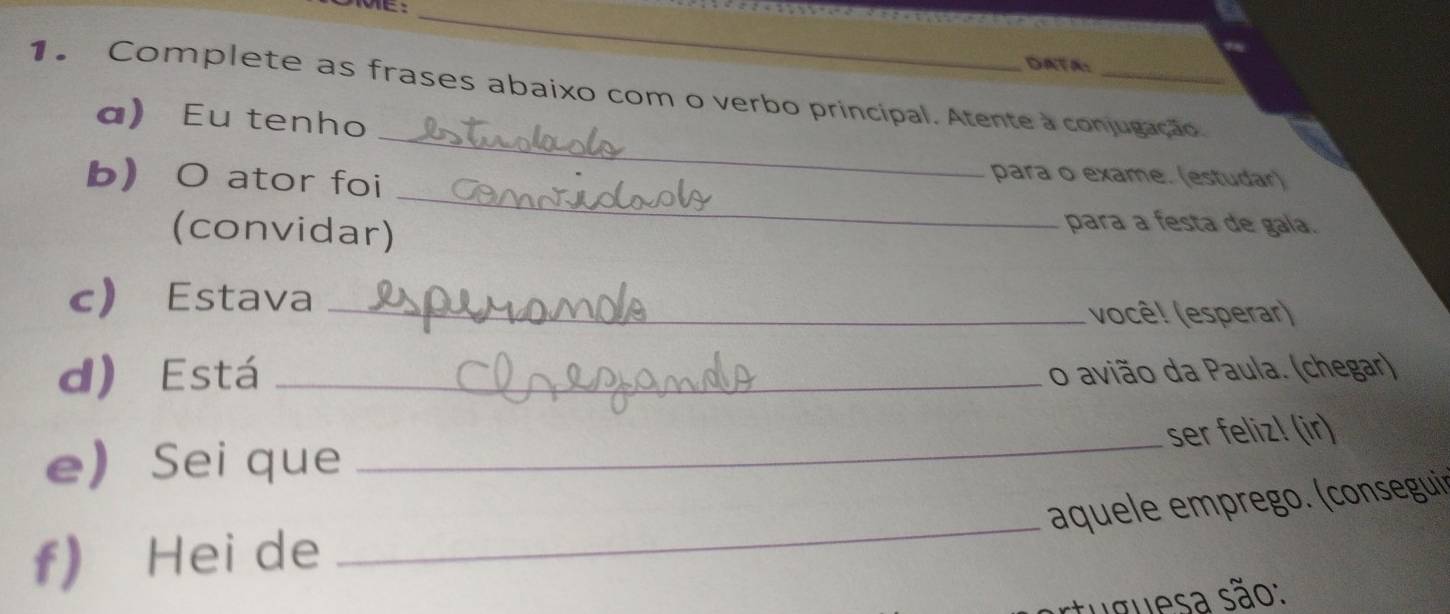 DATA:
1. Complete as frases abaixo com o verbo principal. Atente à conjugação.
a) Eu tenho estudado para o exame. (estudar)
b) O ator foi convidado para a festa de gala.
(convidar)
c) Estava esperando você! (esperar)
d) Está chegando o avião da Paula. (chegar)
e) Sei que ser feliz! (ir)
f) Hei de aquele emprego. (conseguir
são: